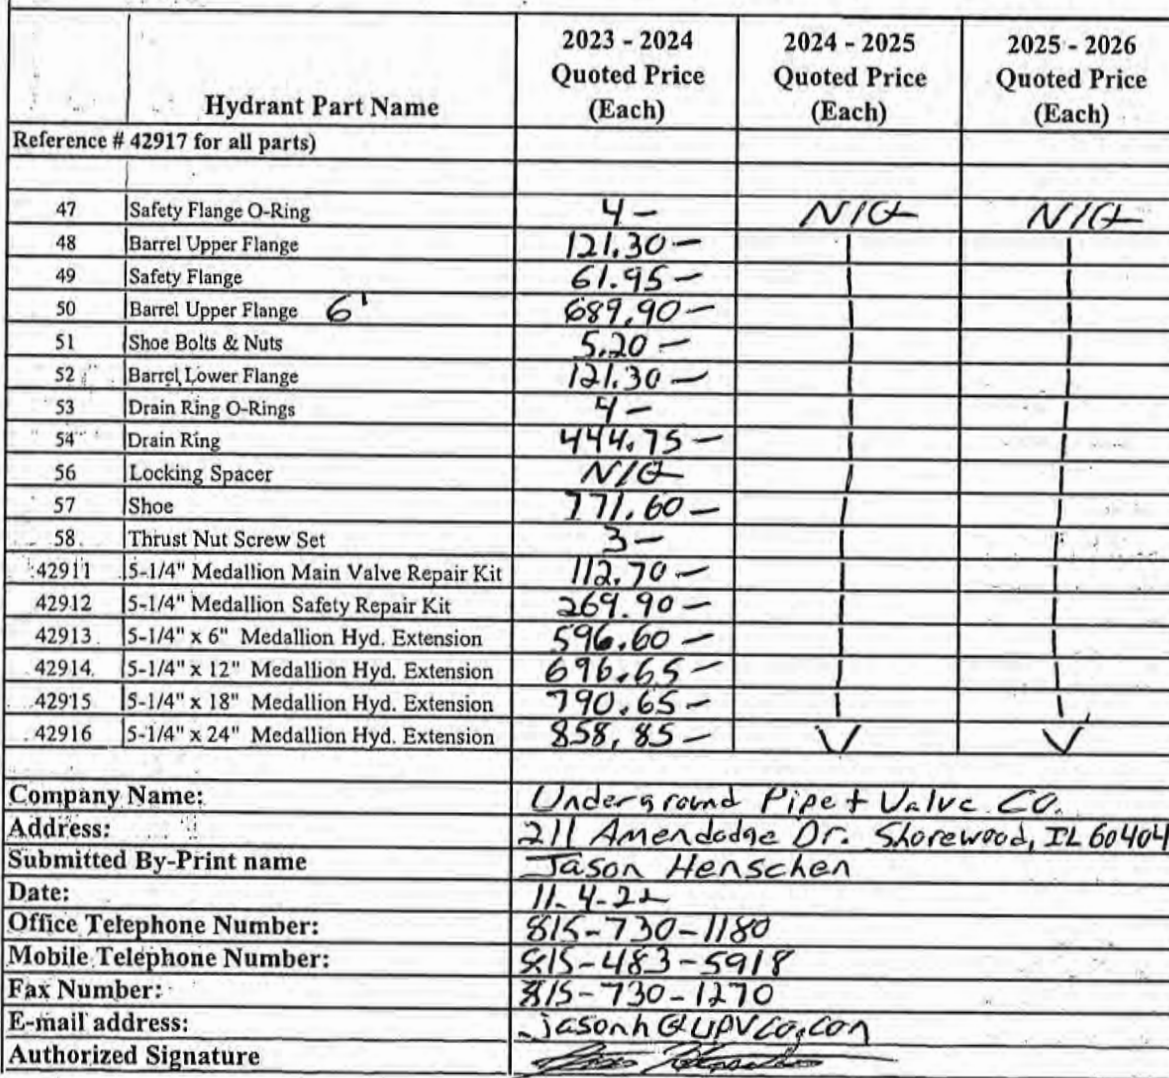 Hydrant Part Name 2023 - 2024 Quoted Price (Each) 2024 - 2025 Quoted Price (Each) 2025 - 2026 Quoted Price (Each)
Reference # 42917 for all parts)
47 Safety Flange O-Ring 4 – N/Q N/Q
48 Barrel Upper Flange 121.30 –
49 Safety Flange 61.95 –
50 Barrel Upper Flange 6' 689.90 –
51 Shoe Bolts & Nuts 5.20 –
52 Barrel Lower Flange 121.30 –
53 Drain Ring O-Rings 4 –
54 Drain Ring 444.75 –
56 Locking Spacer N/Q
57 Shoe 771.60 –
58. Thrust Nut Screw Set 3 –
42911 5-1/4" Medallion Main Valve Repair Kit 112.70 –
42912 5-1/4" Medallion Safety Repair Kit 269.90 –
42913 5-1/4" x 6" Medallion Hyd. Extension 596.60 –
42914 5-1/4" x 12" Medallion Hyd. Extension 696.65 –
42915 5-1/4" x 18" Medallion Hyd. Extension 790.65 –
42916 5-1/4" x 24" Medallion Hyd. Extension 858.85 –
Company Name: Underground Pipe + Valve Co.
Address: 211 Amendodge Dr. Shorewood, IL 60404
Submitted By-Print name Jason Henschen
Date: 11-4-22
Office Telephone Number: 815-730-1180
Mobile Telephone Number: 815-483-5918
Fax Number: 815-730-1270
E-mail address: jasonh@upvco.com
Authorized Signature